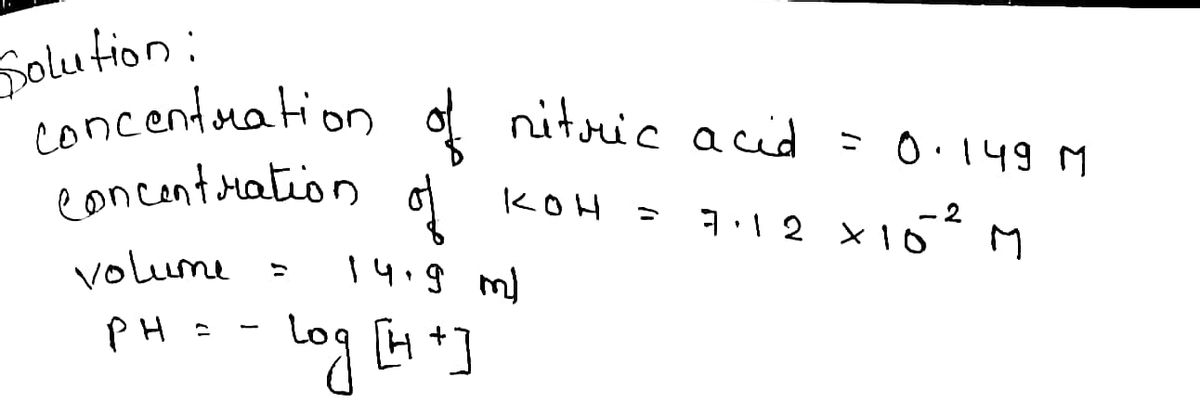 Solution:
concentration of nitric acid = 0.149 M
concentration of KOH = 7.12 × 10⁻² M
volume = 14.9 ml
PH = - log [H⁺]